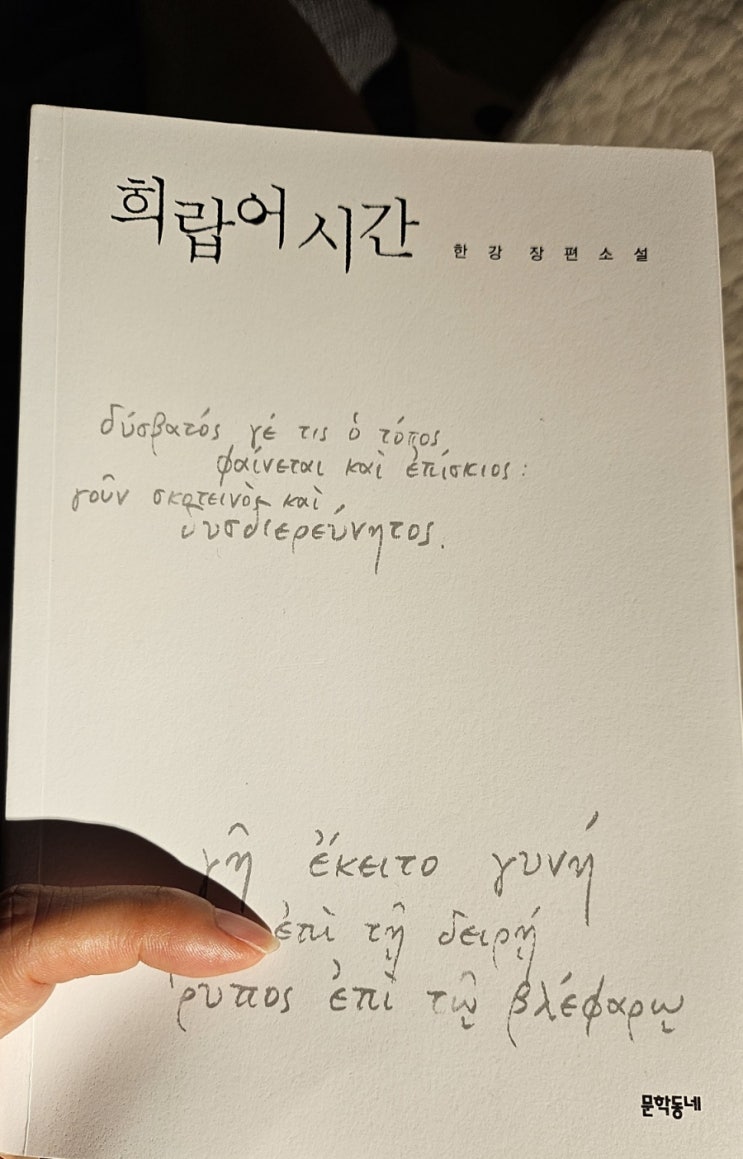 희랍어 시간 한강 장편소설
δύσβατός γέ τις ὁ τόπος
φαίνεται καὶ ἐπίσκιος :
γοῦν σκοτεινὸς καὶ
δυσδιερεύνητος.
γῆ ἔκειτο γυνή
ἐπὶ τῇ δειρῄ
ῥυπος ἐπὶ τῷ βλέφαρῳ
문학동네